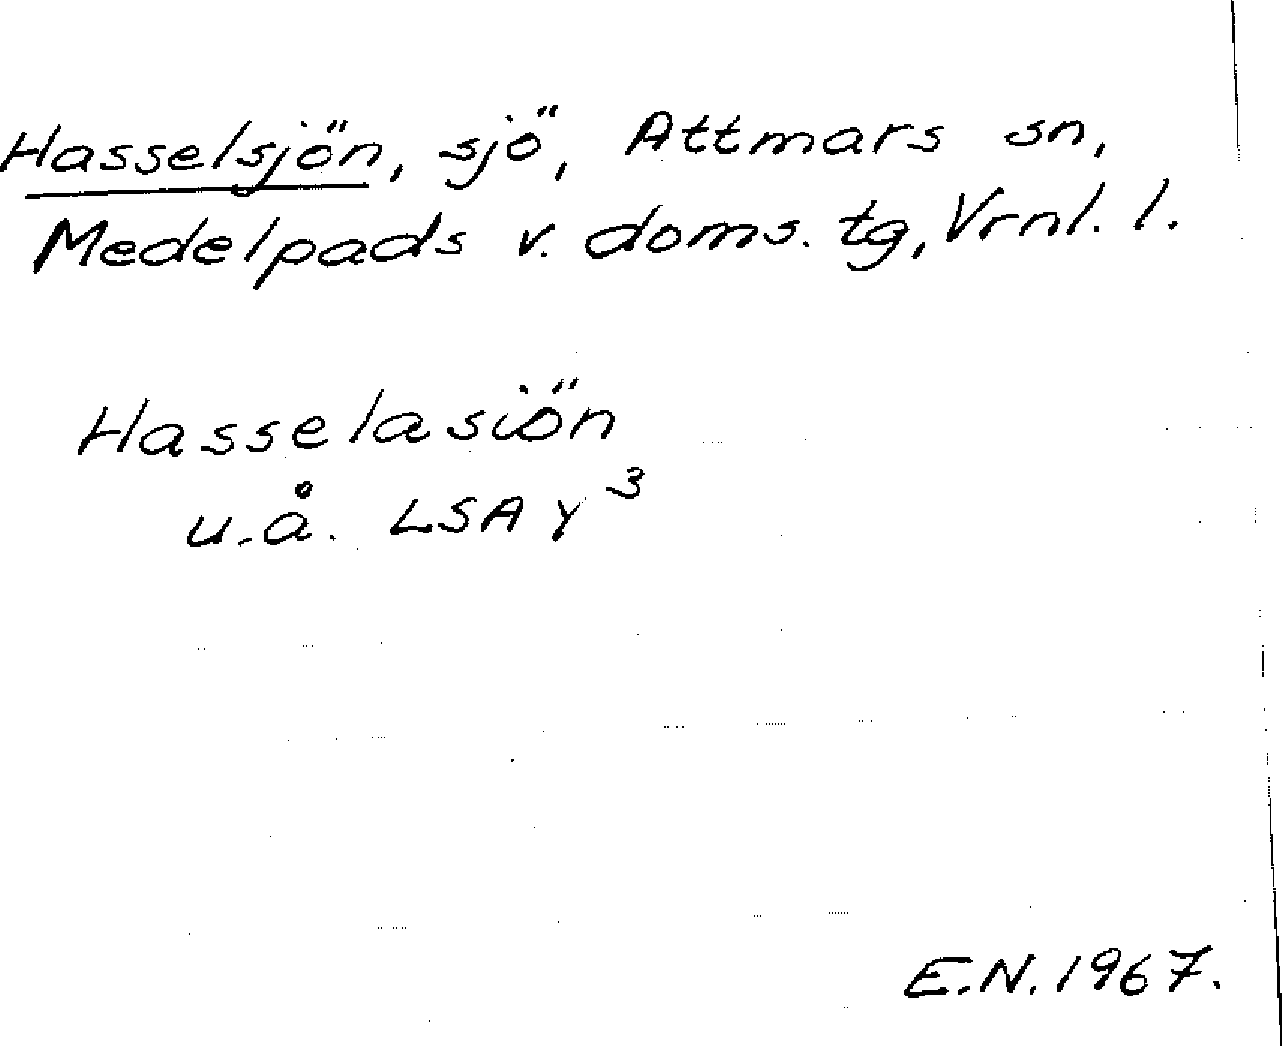 Hasselsjön, sjö, Attmars sn,
Medelpads v. doms. tg, Vrnl. l.
Hasselasiön
u.å. LSA Y³
E.N. 1967.